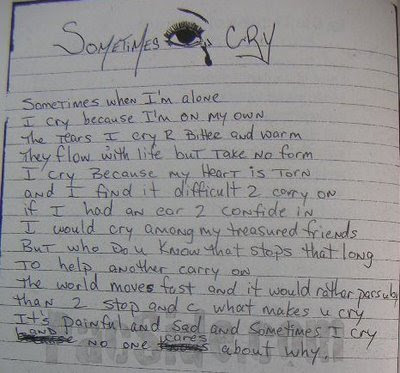 SOMETIMES CRY
Sometimes when I'm alone
I cry because I'm on my own
The Tears I cry R Bitter and warm
They flow with life but Take no form
I cry Because my Heart is Torn
and I find it difficult 2 carry on
if I had an ear 2 confide in
I would cry among my treasured friends
But who Do u Know that stops that long
To help another carry on
The world moves fast and it would rather pass u by
than 2 stop and c what makes u cry
It's painful and sad and sometimes I cry
and no one cares about why.